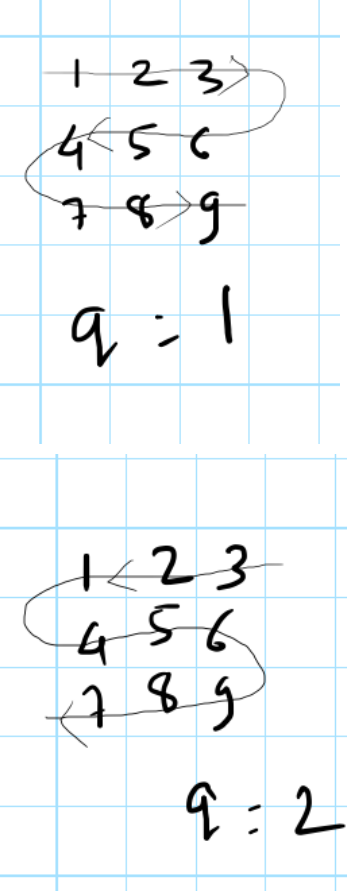 1 2 3
4 5 6
7 8 9
q = 1
1 2 3
4 5 6
7 8 9
q = 2